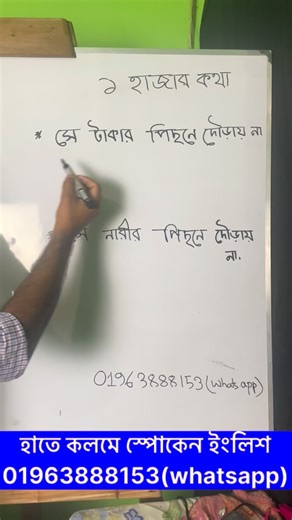 ১ হাজার কথা
* সে টাকার পিছনে দৌড়ায় না
নারীর পিছনে দৌড়ায়
না.
01963888153(whats app)
হাতে কলমে স্পোকেন ইংলিশ
01963888153(whatsapp)